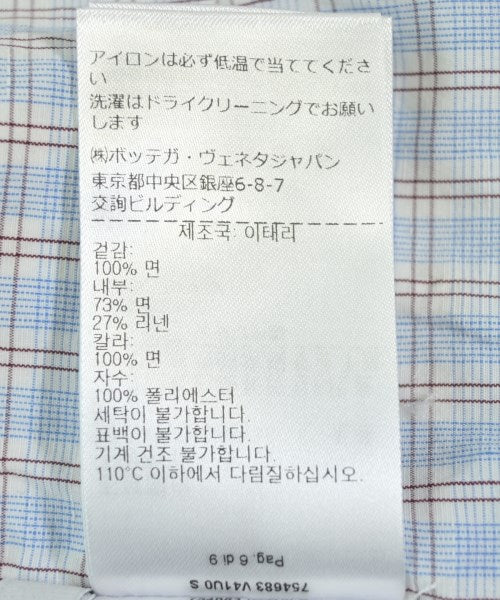 アイロンは必ず低温で当ててくださ
い
洗濯はドライクリーニングでお願い
します
㈱ボッテガ・ヴェネタジャパン
東京都中央区銀座6-8-7
交詢ビルディング
제조국: 이태리
겉감:
100% 면
내부:
73% 면
27% 리넨
칼라:
100% 면
자수:
100% 폴리에스터
세탁이 불가합니다.
표백이 불가합니다.
기계 건조 불가합니다.
110°C 이하에서 다림질하십시오.
Pag. 6 di 9
754683 V41U0 S